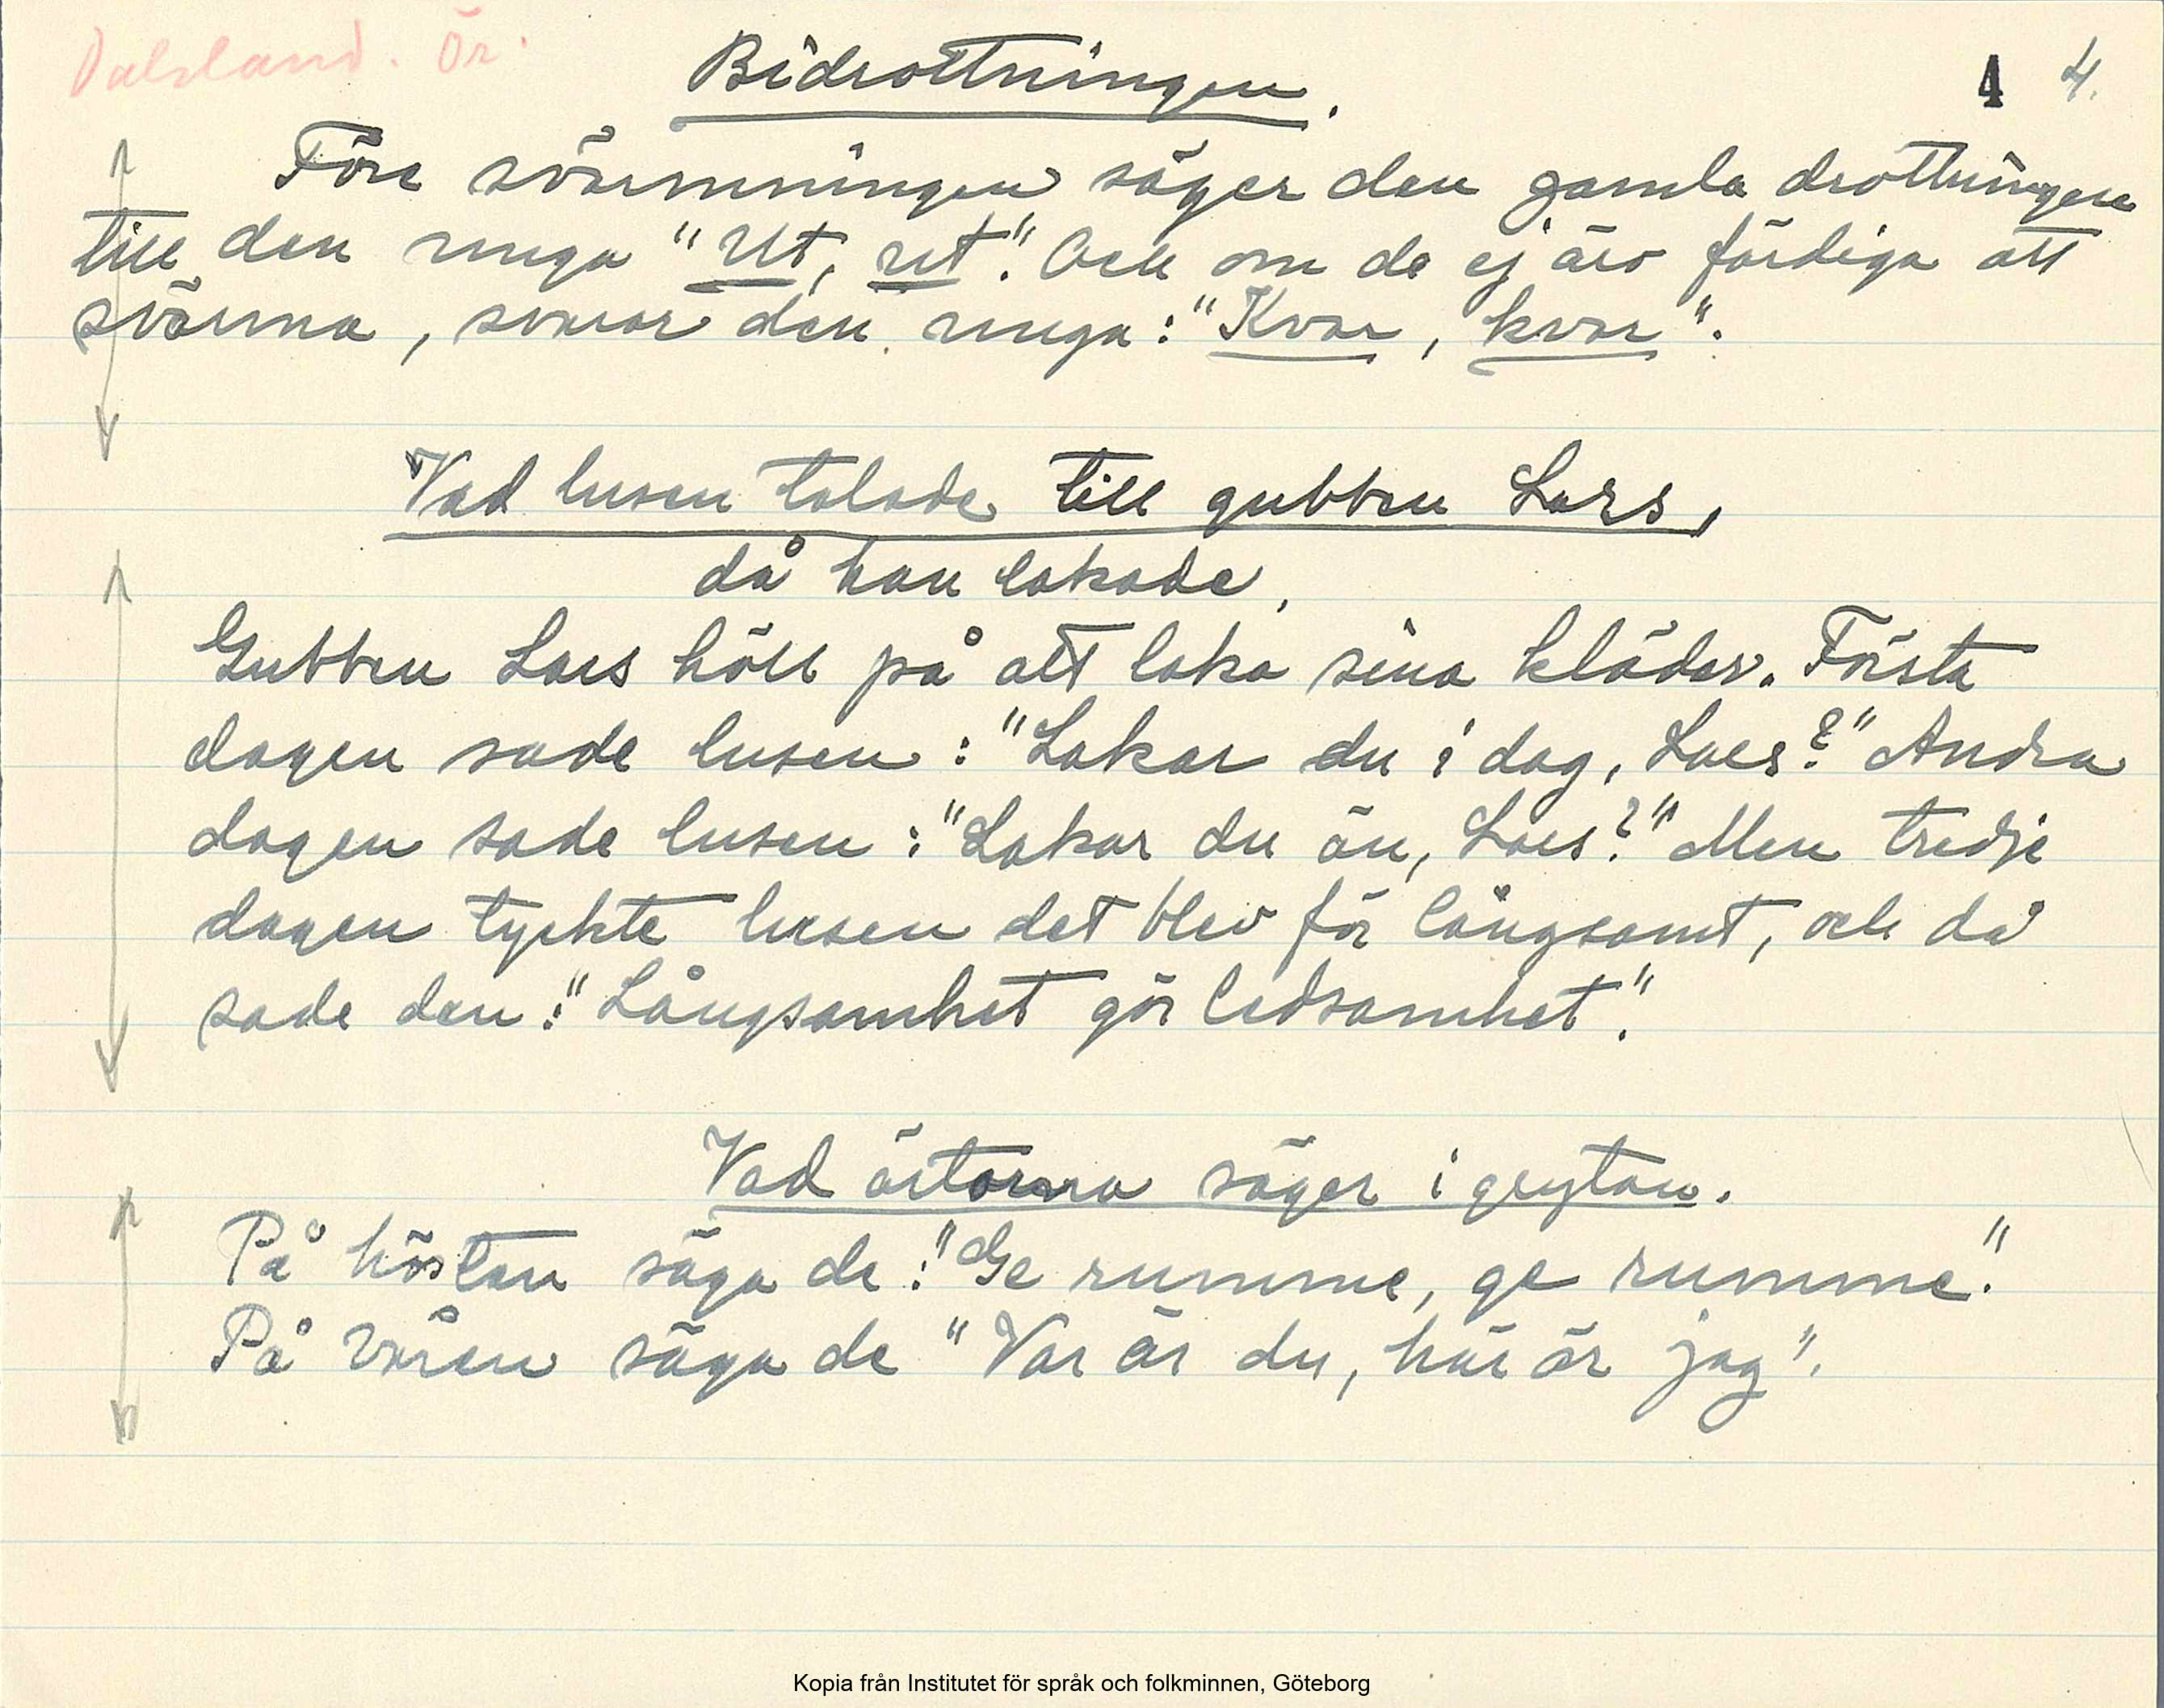 Dalsland. Ör.
Bidrottningen.
4 4.
Före svärmningen säger den gamla drottningen
till den unga "Ut, ut". Och om de ej äro färdiga att
svärma, svarar den unga: "Kvar, kvar".
Vad lusen talade till gubben Lars,
då han lakade.
Gubben Lars höll på att laka sina kläder. Första
dagen sade lusen: "Lakar du i dag, Lars?" Andra
dagen sade lusen: "Lakar du än, Lars?" Men tredje
dagen tyckte lusen det blev för långsamt, och då
sade den: "Långsamhet gör ledsamhet".
Vad ärtorna säger i grytan.
På hösten säga de: "Ge rumme, ge rumme."
På våren säga de "Var är du, här är jag".
Kopia från Institutet för språk och folkminnen, Göteborg